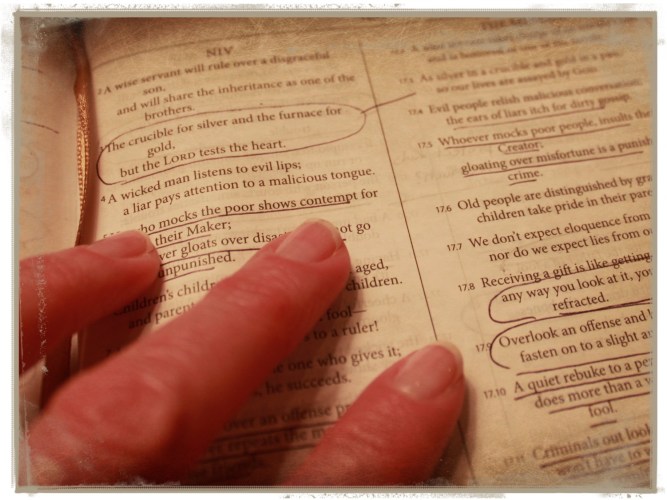 NIV
2A wise servant will rule over a disgraceful
son,
and will share the inheritance as one of the
brothers.
The crucible for silver and the furnace for
gold,
but the LORD tests the heart.
4A wicked man listens to evil lips;
a liar pays attention to a malicious tongue.
who mocks the poor shows contempt for
their Maker;
ver gloats over disas not go
unpunished.
aged,
children.
fool—
to a ruler!
one who gives it;
he succeeds.
over an offense
17.3 As silver in a crucible and gold in a pan,
so our lives are assayed by GOD.
17.4 Evil people relish malicious conversation;
the ears of liars itch for dirty gossip.
17.5 Whoever mocks poor people, insults the
Creator;
gloating over misfortune is a punish
crime.
17.6 Old people are distinguished by gra
children take pride in their pare
17.7 We don't expect eloquence from
nor do we expect lies from o
17.8 Receiving a gift is like getting
any way you look at it, yo
refracted.
17.9 Overlook an offense and b
fasten on to a slight a
17.10 A quiet rebuke to a pe
does more than a
fool.
17.11 Criminals out look
won't have to